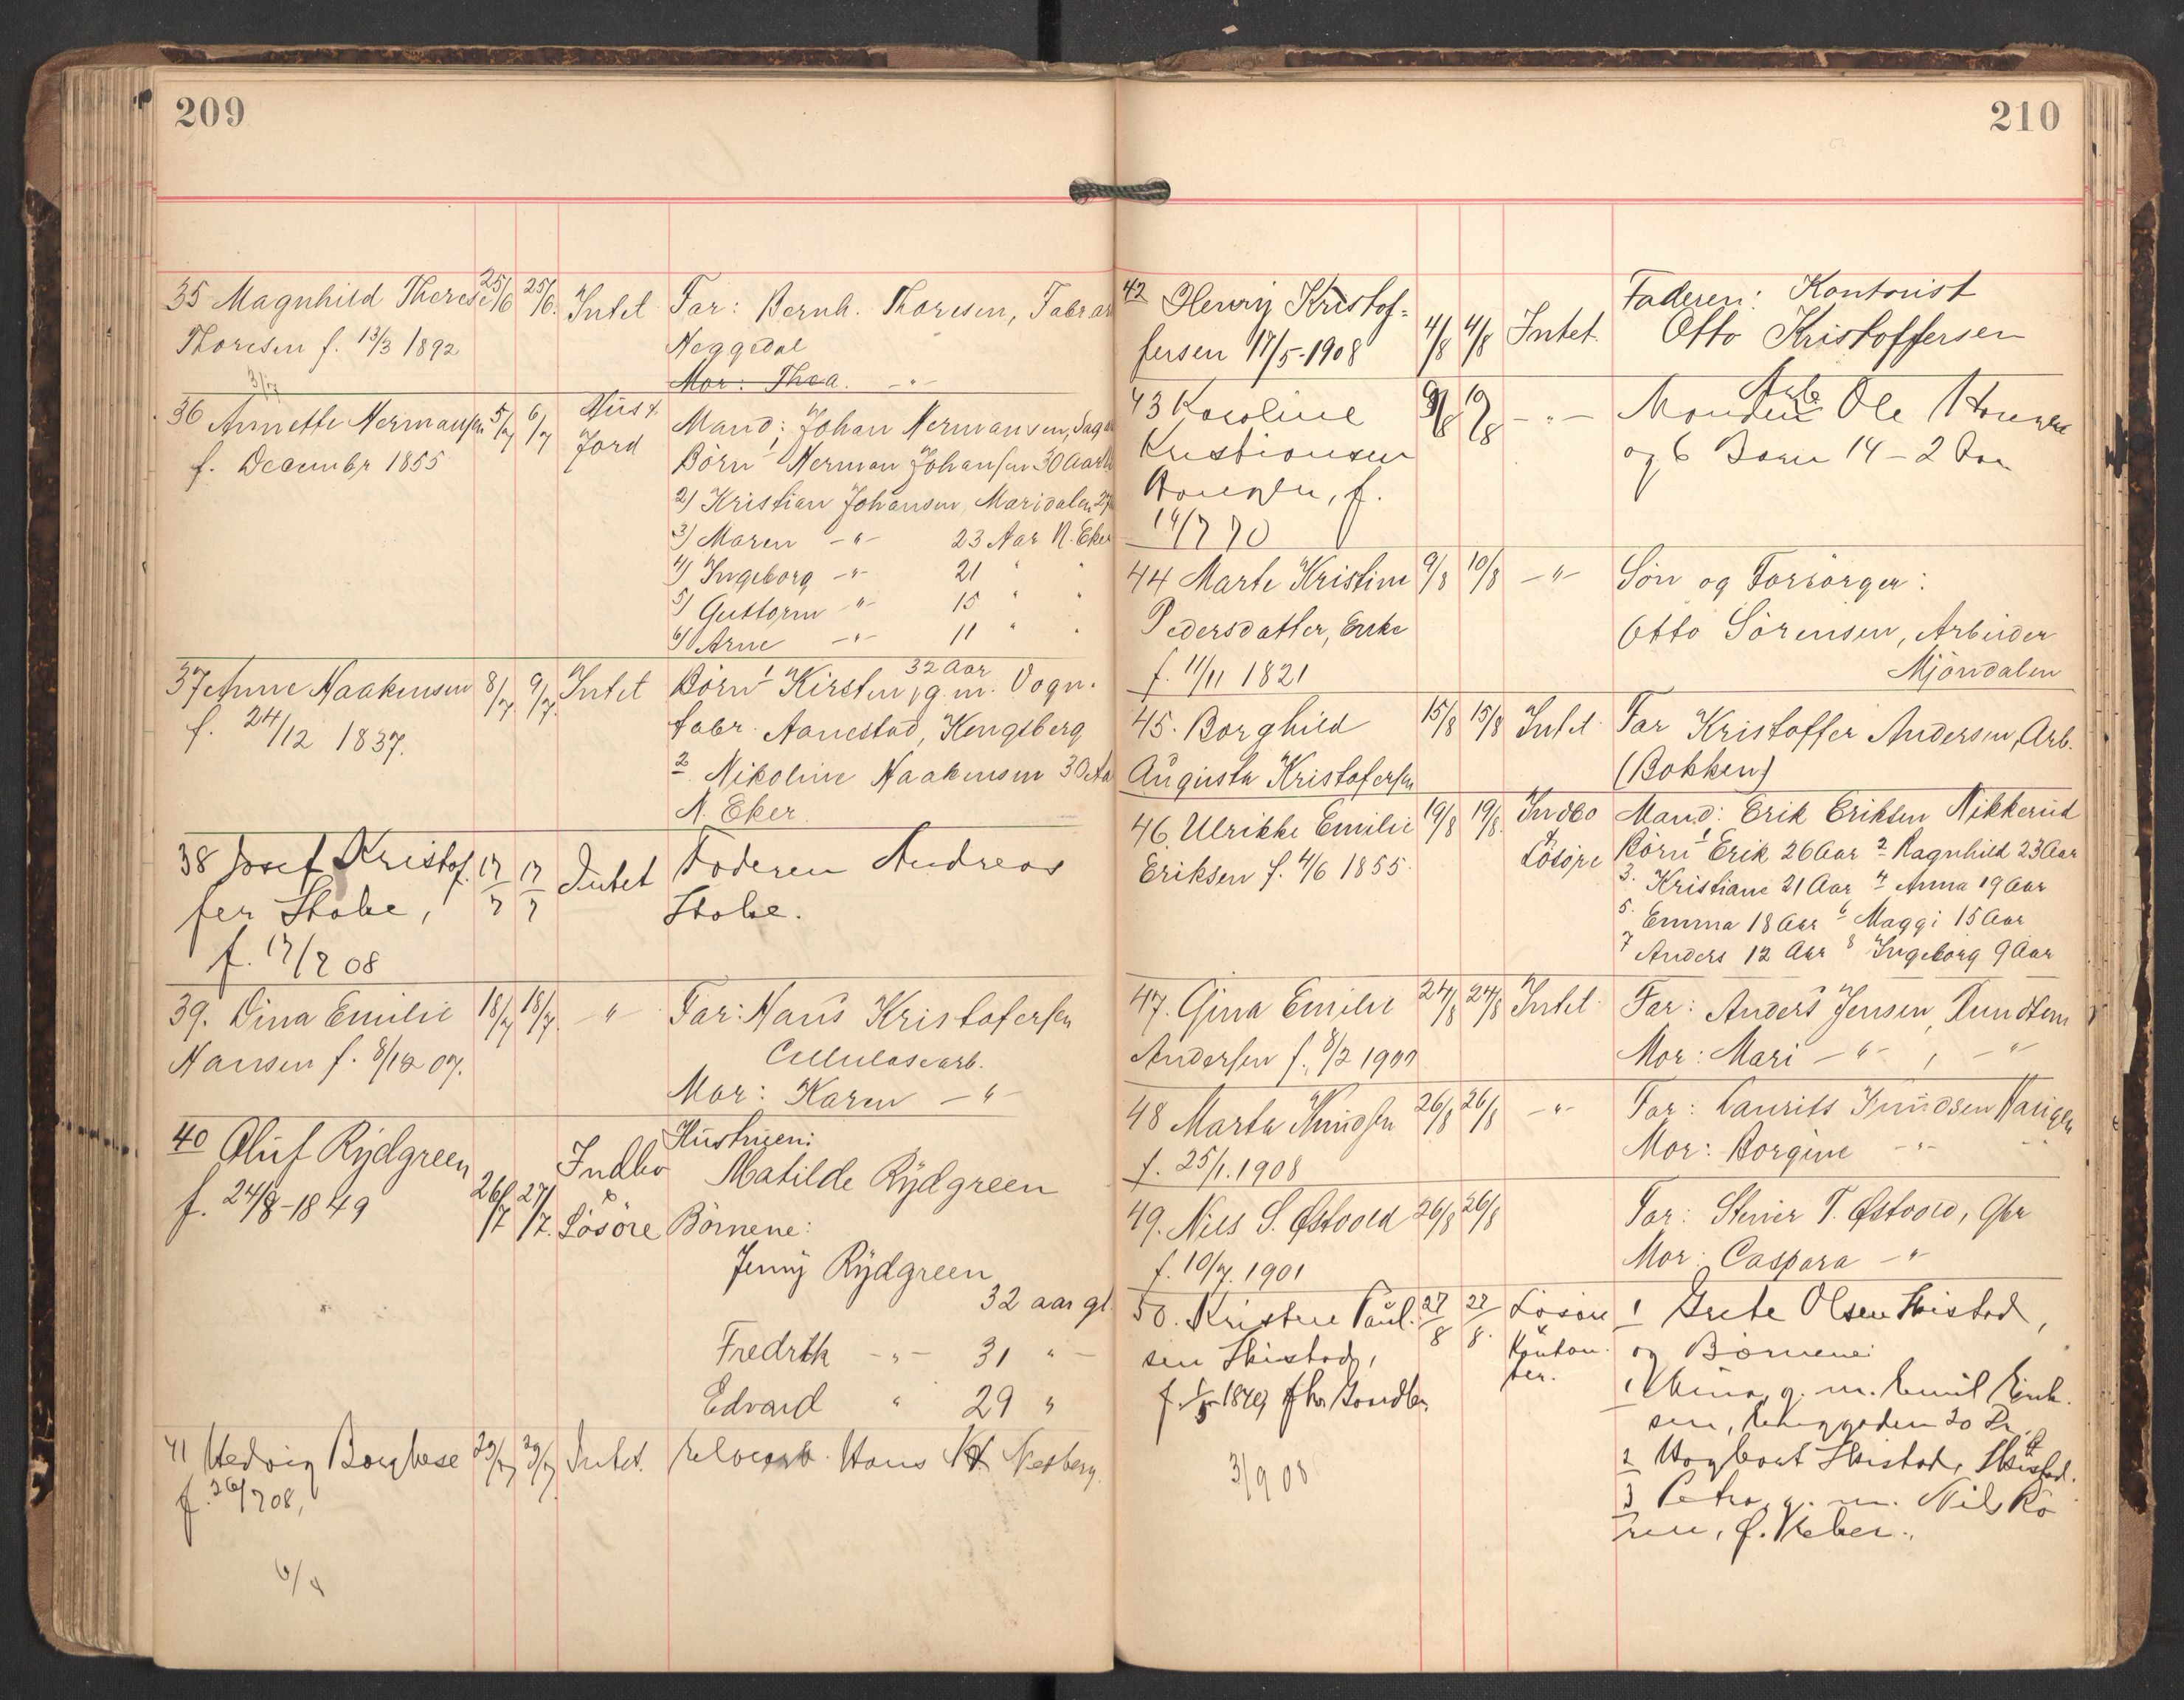 209
35 Magnhild Therese 25/6 25/6. Intet Far: Bernh. Thoresen, Fabrar
Thoresen f. 13/3 1892 Heggedal
Mor: Thea. -"-
3/7
36 Annette Hermansen 5/7 6/7 Hus & Mand: Johan Hermansen, Sag
f. Decembr 1855 Jord Börn 1 Herman Johansen 30 Aar
2) Kristian Johansen, Maridalen 27
3) Maren -"- 23 Aar N. Eker
4) Ingeborg -"- 21 " "
5) Guttorm -"- 15 " "
6) Arne -"- 11 " "
37 Anne Haakensen 8/7 9/7. Intet Börn 1 Kirsten, 32 Aar g. m. Vogn-
f. 24/12 1837. fabr. Aanestad, Kongsberg
2. Nikoline Haakensen 30 Aa
N. Eker.
38 Josef Kristof- 17/7 17/7 Intet Faderen Andreas
fer Stabe, Stabe.
f. 17/7 08
39. Dina Emilie 18/7 18/7. -"- Far: Hans Kristofersen
Hansen f. 8/12 07. Cellulosearb.
Mor: Karen -"-
40 Oluf Rydgreen 26/7 27/7. Indbo Hustruen:
f. 24/8-1849 & Matilde Rydgreen
Lösöre Börnene:
Jenny Rydgreen
32 aar gl.
Fredrik -"- 31 " -
Edvard " 29 "
41 Hedvig Borghese 29/7 29/7 Intet. Elvearb. Hans Kr. Nesberg.
f. 26/7 08,
6/8
210
42 Henry Kristof- 4/8 4/8 Intet. Faderen: Kontorist
fersen 17/5-1908 Otto Kristoffersen
43 Karoline 9/8 10/8 -"- Manden Arb. Ole Haugen
Kristiansen og 6 Børn 14-2 Aar
Haugen, f.
14/7 70
44 Marte Kristine 9/8 10/8 -"- Sön og Forsörger:
Pedersdatter, Enke Otto Sörensen, Arbeider
f. 11/11 1821 Mjöndalen
45. Borghild 15/8 15/8 Intet. Far Kristoffer Andersen, Arb.
Augusta Kristofersen (Bokken)
46. Ulrikke Emilie 19/8 19/8. Indbo Mand: Erik Eriksen Nikkerud
Eriksen f. 4/6 1855. & Lösöre Börn 1 Erik 26 Aar 2 Ragnhild 23 Aar
3. Kristiane 21 Aar 4 Anna 19 Aar
5. Emma 18 Aar 6 Maggi 15 Aar
7 Anders 12 Aar 8 Ingeborg 9 Aar
47. Gina Emilie 24/8 24/8 Intet. Far: Anders Jensen, Rundtom
Andersen f. 8/2 1907 Mor: Mari -"- , -"-
48 Marta Knudsen 26/8 26/8 -"- Far: Laurits Knudsen Haugen
f. 25/1. 1908 Mor: Borgine -"-
49. Nils S. Østvold 26/8 26/8 Far: Stener T. Østvold, Gbr
f. 10/7. 1901 Mor: Caspara -"-
50. Kristine Paul- 27/8 27/8. Lösöre 1 Grete Olsen Skistad,
sen Skistad, & Kontan- og Børnene:
f. 1849 ter. 1 g. m. Emil Erik-
sen, 20 Dr.
2 Skistad, Skistad.
3 Petra, g. m. Nils Rö
ren, Ø. Eker.
3/9 08